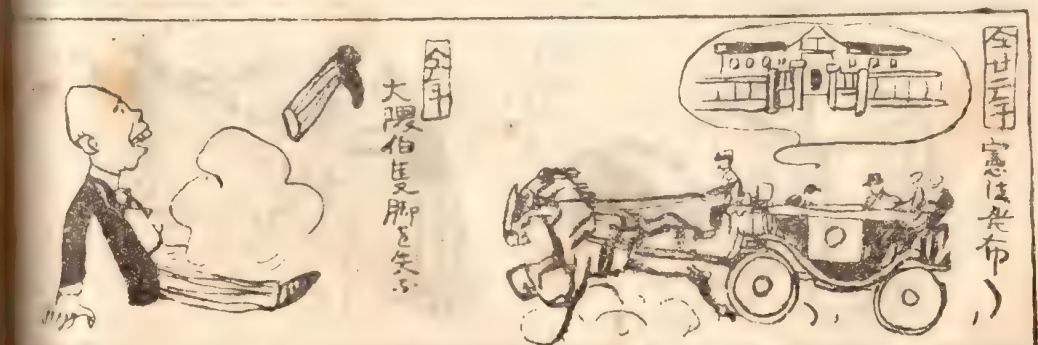 仝廿二年
憲法発布
仝年
大隈伯隻脚を失ふ